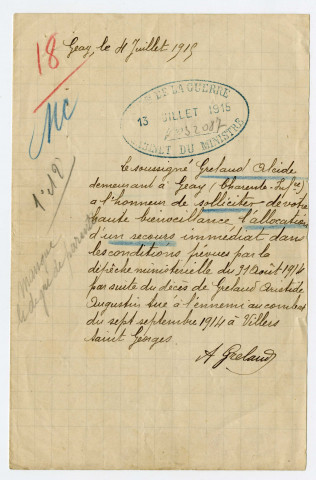 18
Geay, le 4 Juillet 1915
DE LA GUERRE
13 JUILLET 1915
CABINET DU MINISTRE
Mc
1° N° 2
Le soussigné Grelaud Alcide
demeurant à Geay (Charente-Infre)
a l'honneur de solliciter de votre
haute bienveillance l'allocation
d'un secours immédiat dans
les conditions prévues par la
dépêche ministérielle du 31 août 1914
par suite du décès de Grelaud Aristide
Augustin tué à l'ennemi au combat
du sept septembre 1914 à Villers
Saint Georges.
A Grelaud
manque
le degré de parenté